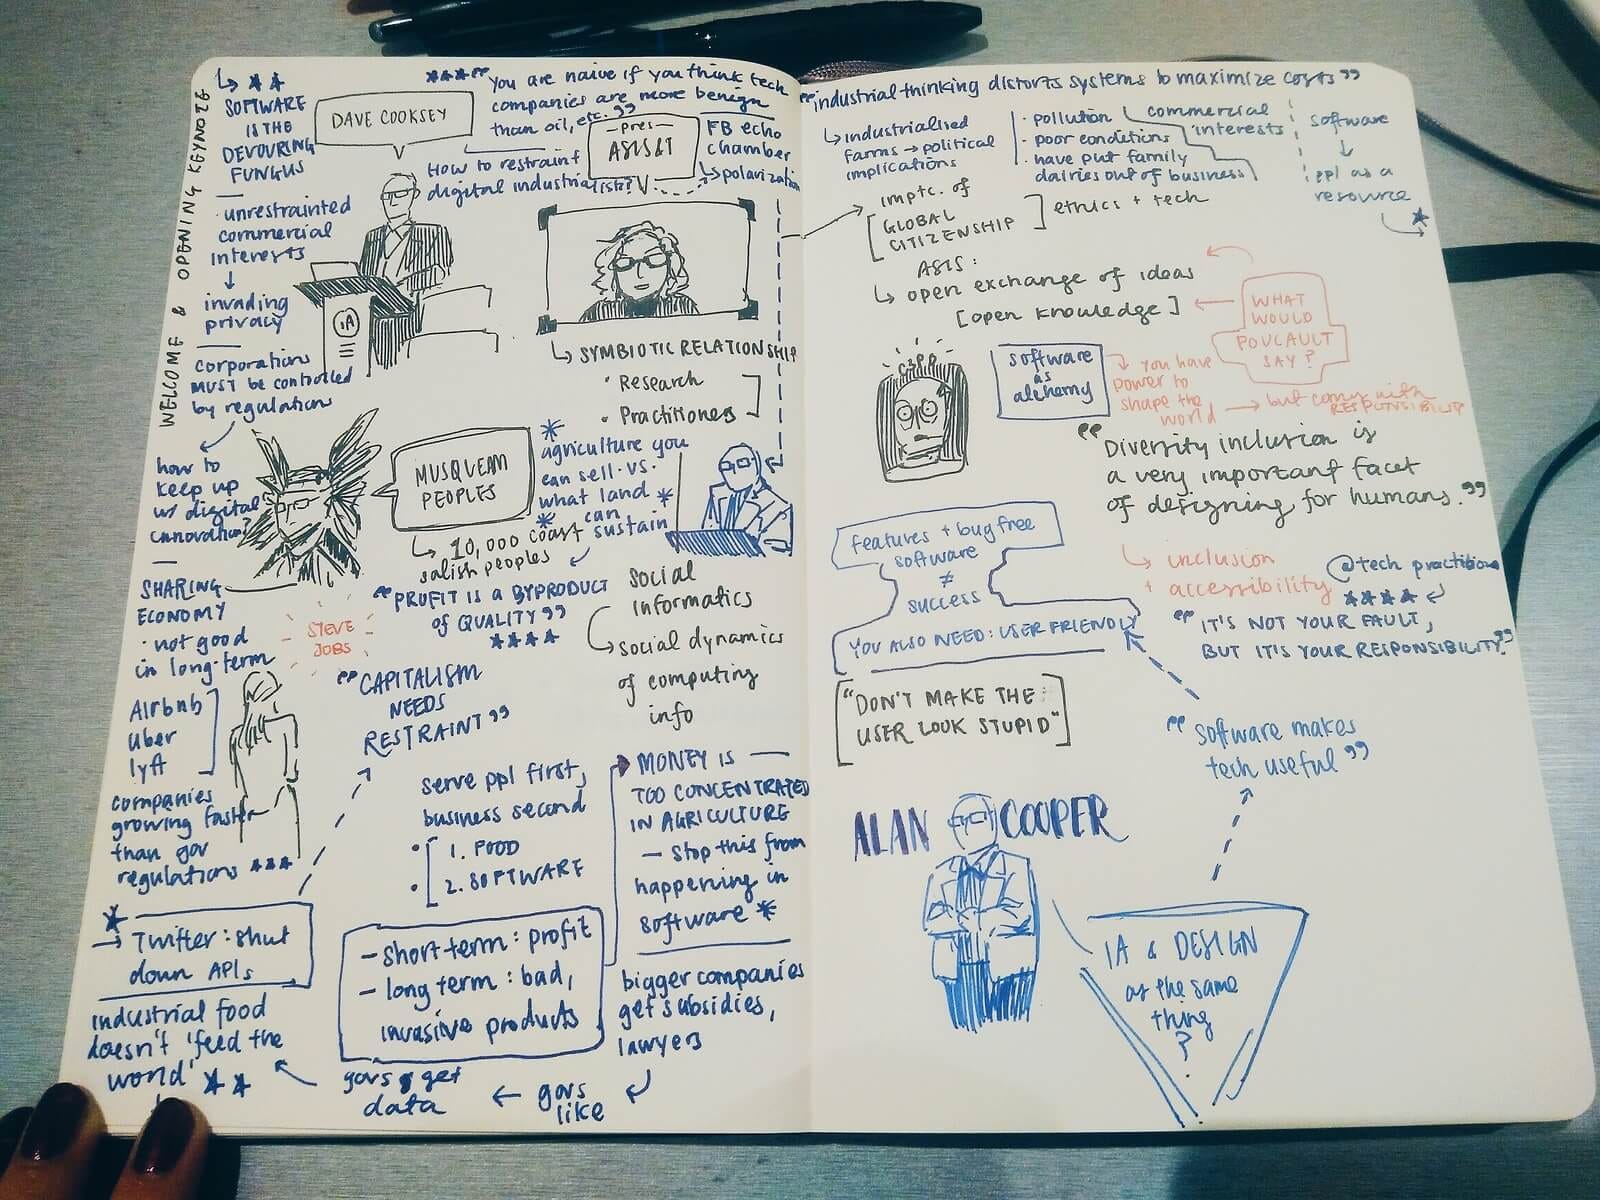 WELCOME & OPENING KEYNOTE
SOFTWARE
IS THE
DEVOURING
FUNGUS
unrestrainted
commercial
interests
invading
privacy
corporations
MUST BE controlled
by regulation
how to
keep up
w/ digital
innovation?
SHARING
ECONOMY
· not good
in long-term
Airbnb
Uber
lyft
companies
growing faster
than gov
regulations
Twitter: shut
down APIs
industrial food
doesn't 'feed the
world'
DAVE COOKSEY
"You are naive if you think tech
companies are more benign
than oil, etc."
How to restraint
digital industrialist?
-pres-
ASIS&T
FB echo
chamber
polarization
iA
SYMBIOTIC RELATIONSHIP
· Research
· Practitioners
MUSQUEAM
PEOPLES
10,000 coast
salish peoples
agriculture you
can sell vs.
what land
can
sustain
"PROFIT IS A BYPRODUCT
of QUALITY"
STEVE
JOBS
"CAPITALISM
NEEDS
RESTRAINT"
social
informatics
social dynamics
of computing
info
serve ppl first,
business second
1. FOOD
2. SOFTWARE
- short term: profit
- long term: bad,
invasive products
MONEY IS
TOO CONCENTRATED
IN AGRICULTURE
- stop this from
happening in
software
bigger companies
get subsidies,
lawyers
govs
like
govs get
data
"industrial thinking distorts systems to maximize costs"
industrialised
farms → political
implications
· pollution
· poor conditions
· have put family
dairies out of business
commercial
interests
software
ppl as a
resource
imptc. of
GLOBAL
CITIZENSHIP
ethics + tech
ASIS:
open exchange of ideas
[open knowledge]
WHAT
WOULD
FOUCAULT
SAY?
software
as
alchemy
you have
power to
shape the
world
but comes with
RESPONSIBILITY
"Diversity inclusion is
a very important facet
of designing for humans."
inclusion
+ accessibility
features + bug free
software
≠
success
YOU ALSO NEED: USER FRIENDLY
@tech practitions
"IT'S NOT YOUR FAULT,
BUT IT IS YOUR RESPONSIBILITY"
"DON'T MAKE THE
USER LOOK STUPID"
"software makes
tech useful"
ALAN COOPER
IA & DESIGN
as the same
thing
?